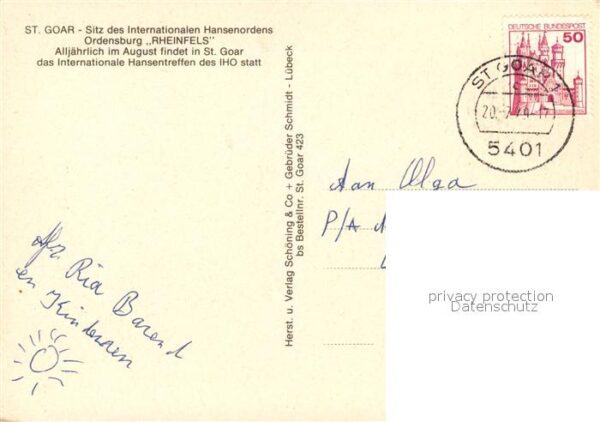 ST. GOAR - Sitz des Internationalen Hansenordens
Ordensburg ,,RHEINFELS"
Alljährlich im August findet in St. Goar
das Internationale Hansentreffen des IHO statt
DEUTSCHE BUNDESPOST
50
ST GOAR 1
5401
Herst. u. Verlag Schöning & Co + Gebrüder Schmidt - Lübeck
bs Bestellnr. St. Goar 423
Aan Olga
P/A
Afz. Ria Barend
en Kinderen
privacy protection
Datenschutz